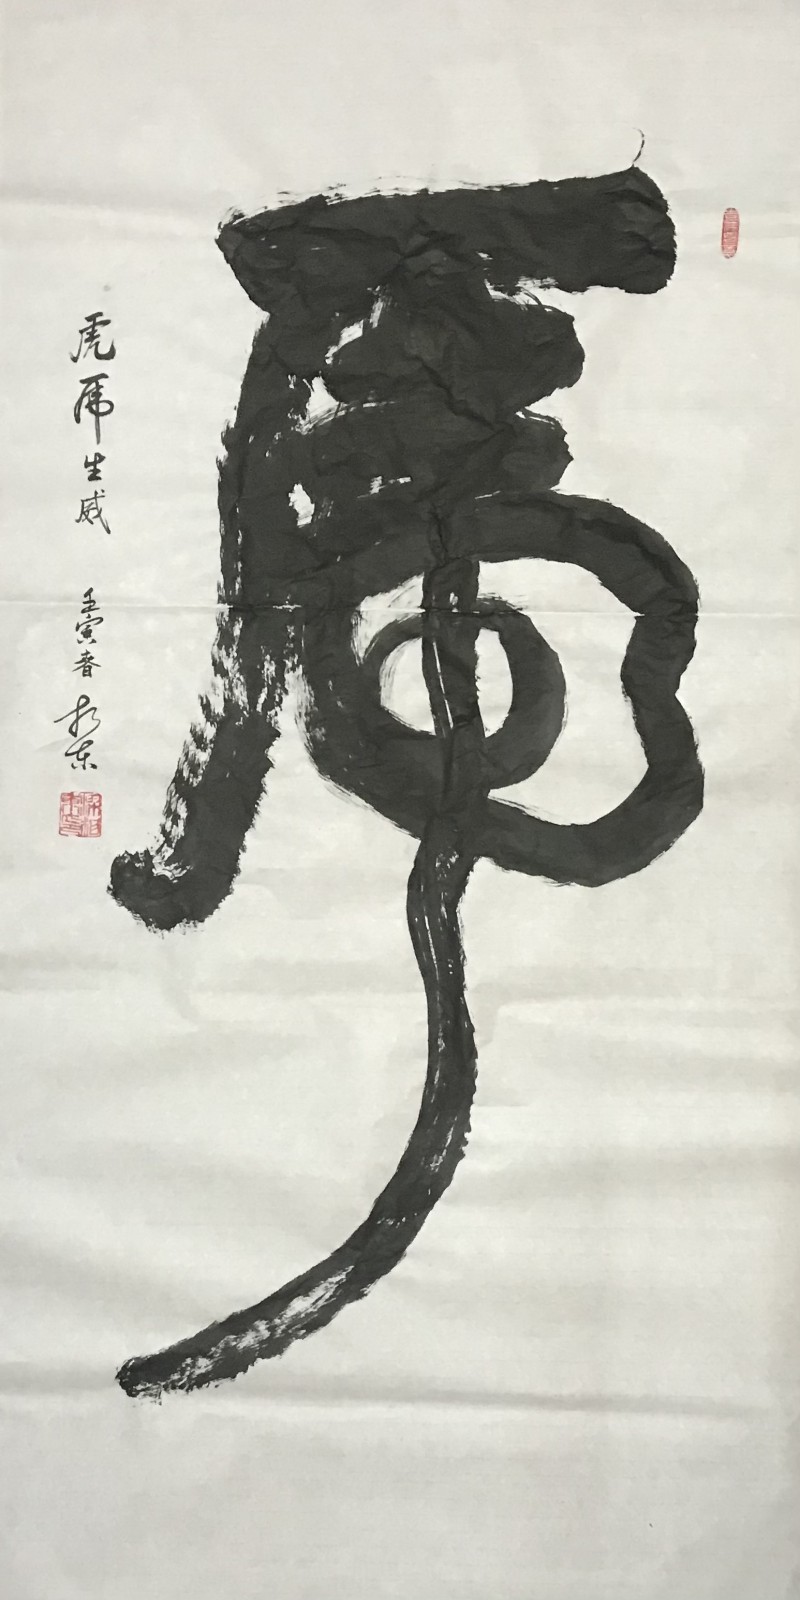 虎
虎虎生威
壬寅春